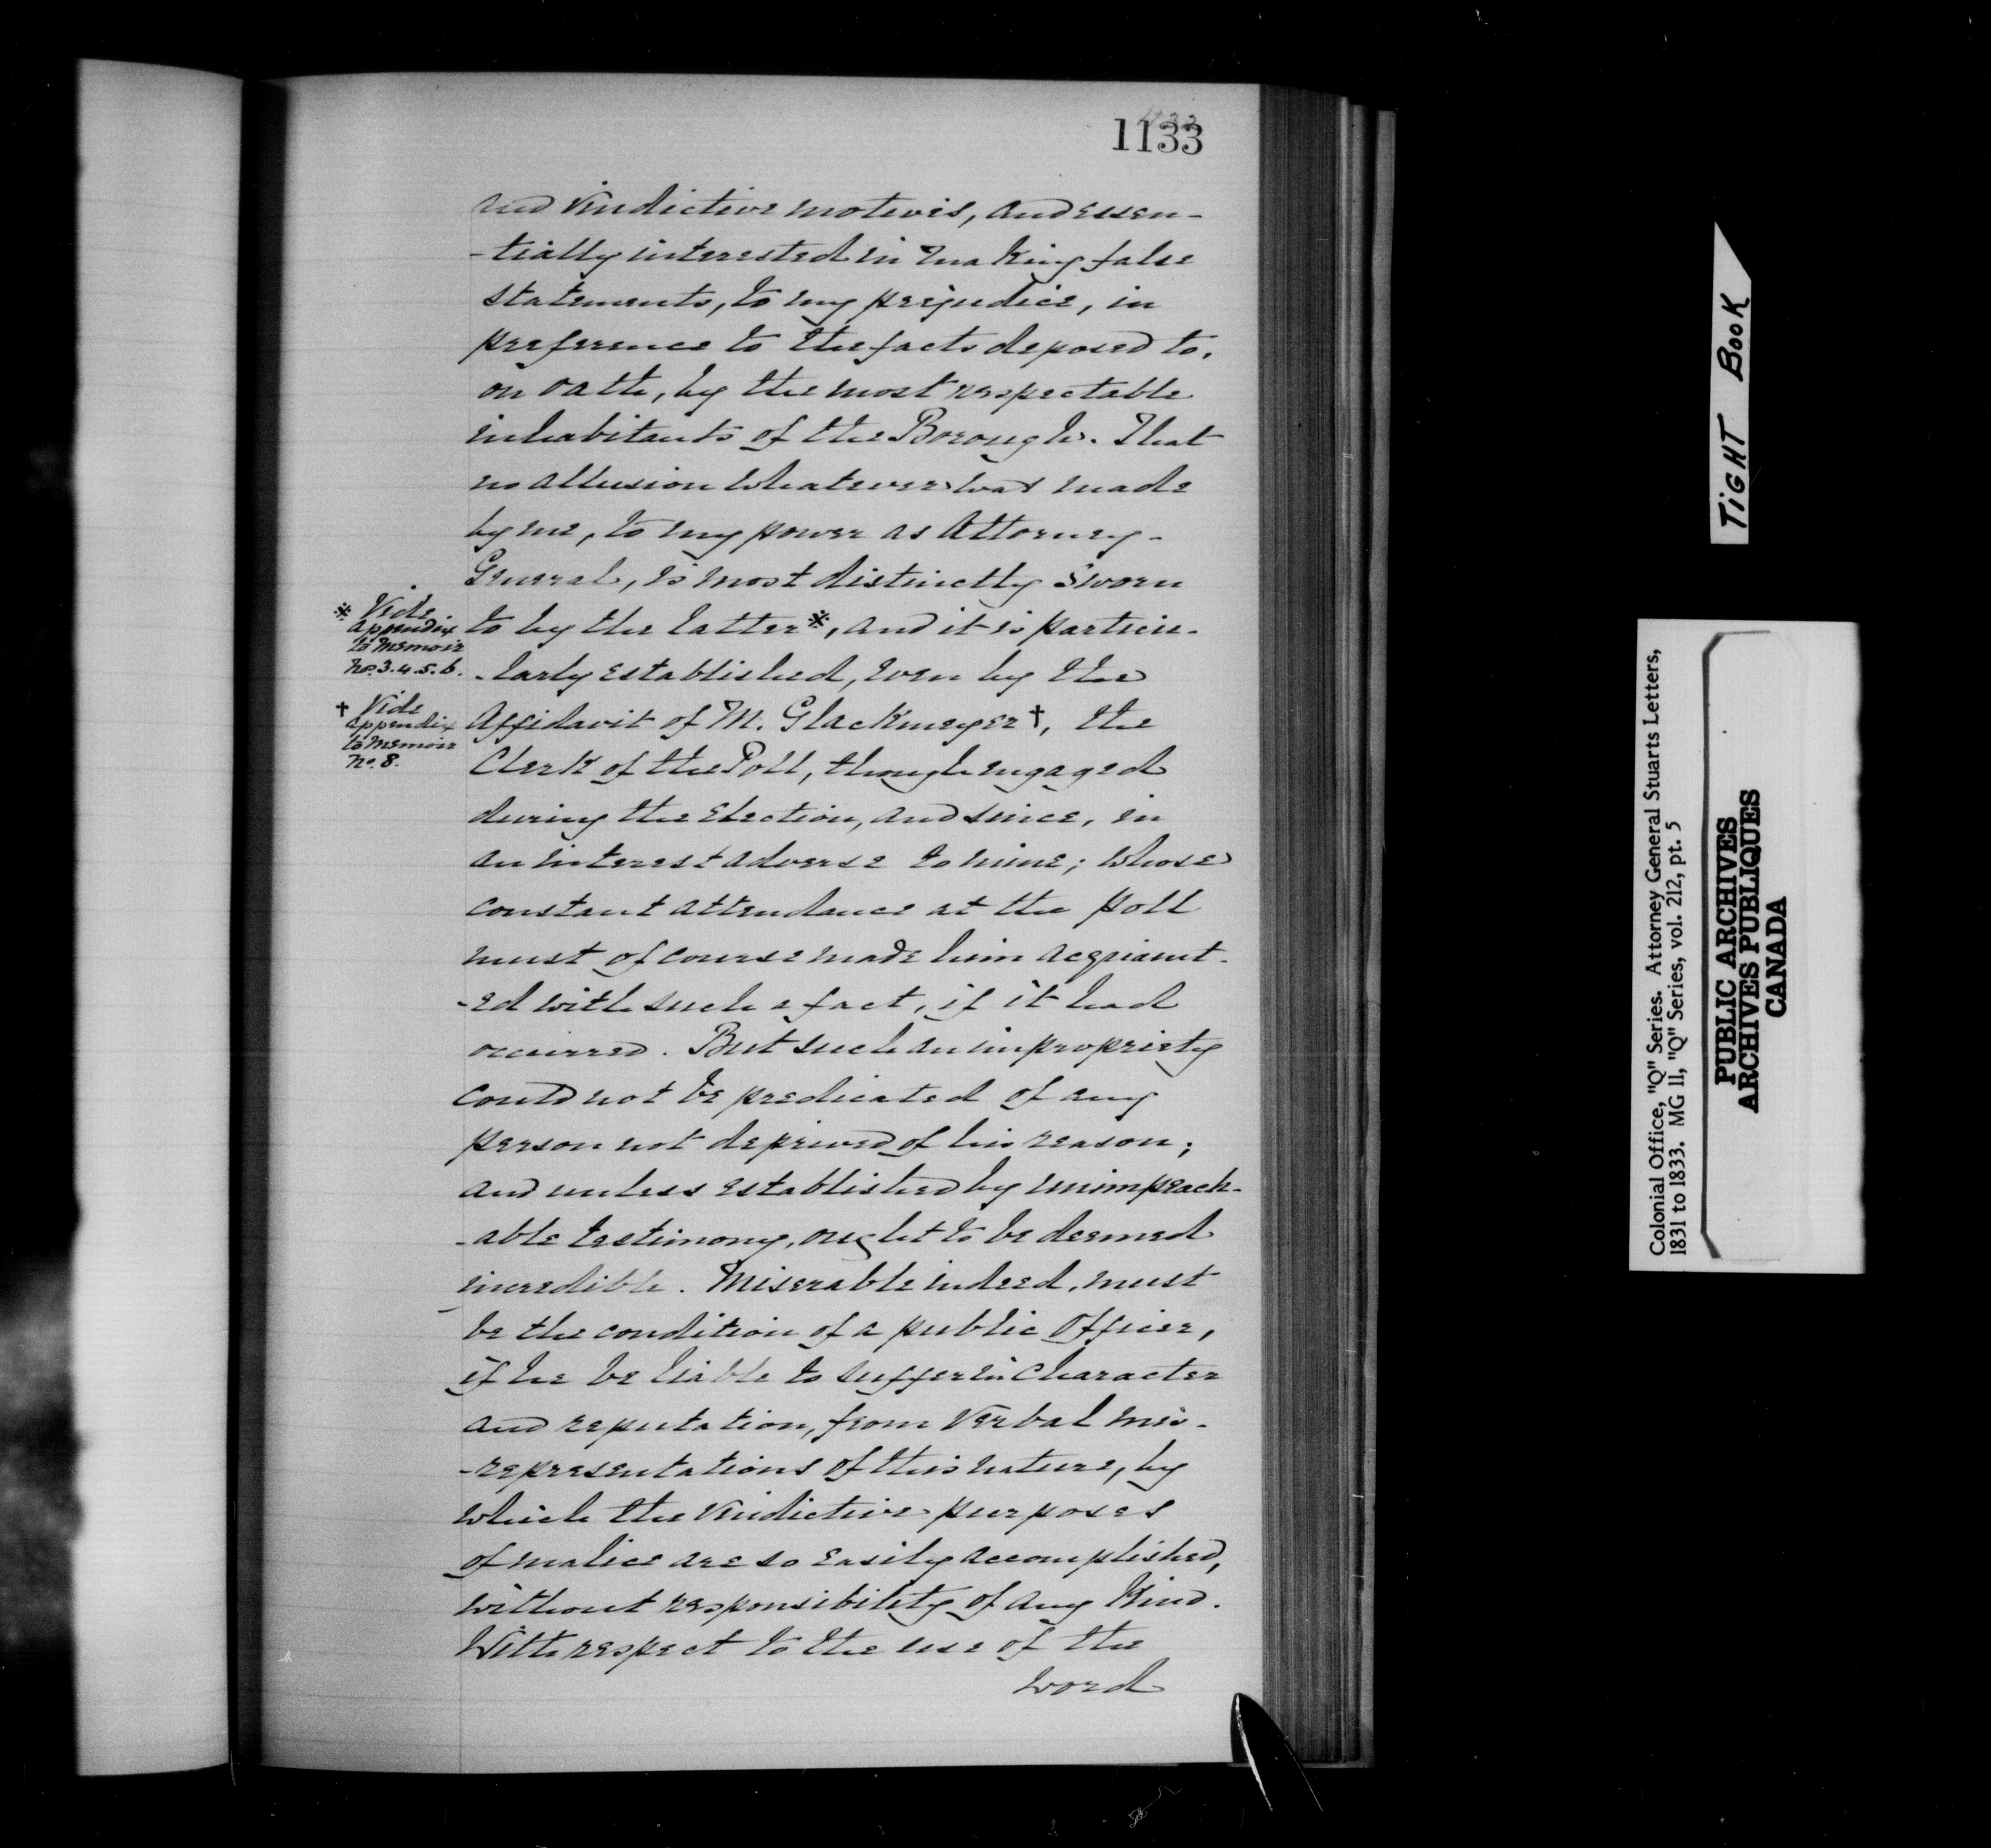 1133
and vindictive motives, and essen-
-tially interested in making false
statements, to my prejudice, in
preference to the facts deposed to,
on oath, by the most respectable
inhabitants of the Borough. That
no allusion whatever was made
by me, to my power as Attorney-
General, is most distinctly sworn
to by the latter※, and it is particu-
-larly established, even by the
Affidavit of M. Glackmeyer †, the
Clerk of the Poll, though engaged
during the Election, and since, in
an interest adverse to mine; whose
constant attendance at the poll
must of course made him acquaint-
-ed with such a fact, if it had
occurred. But such an impropriety
could not be predicated of any
person not deprived of his reason;
and unless established by unimpeach-
-able testimony, ought to be deemed
incredible. Miserable indeed, must
be the condition of a public Officer,
if he be liable to suffer in Character
and reputation, from verbal mis-
-representations of this nature, by
which the vindictive purposes
of malice are so easily accomplished,
without responsibility of any Kind.
With respect to the use of the
word
※ Vide
Appendix
to Memoir
No. 3. 4. 5. 6.
† Vide
Appendix
to Memoir
No. 8.
TIGHT BOOK
Colonial Office, "Q" Series. Attorney General Stuarts Letters,
1831 to 1833. MG 11, "Q" Series, vol. 212, pt. 5
PUBLIC ARCHIVES
ARCHIVES PUBLIQUES
CANADA